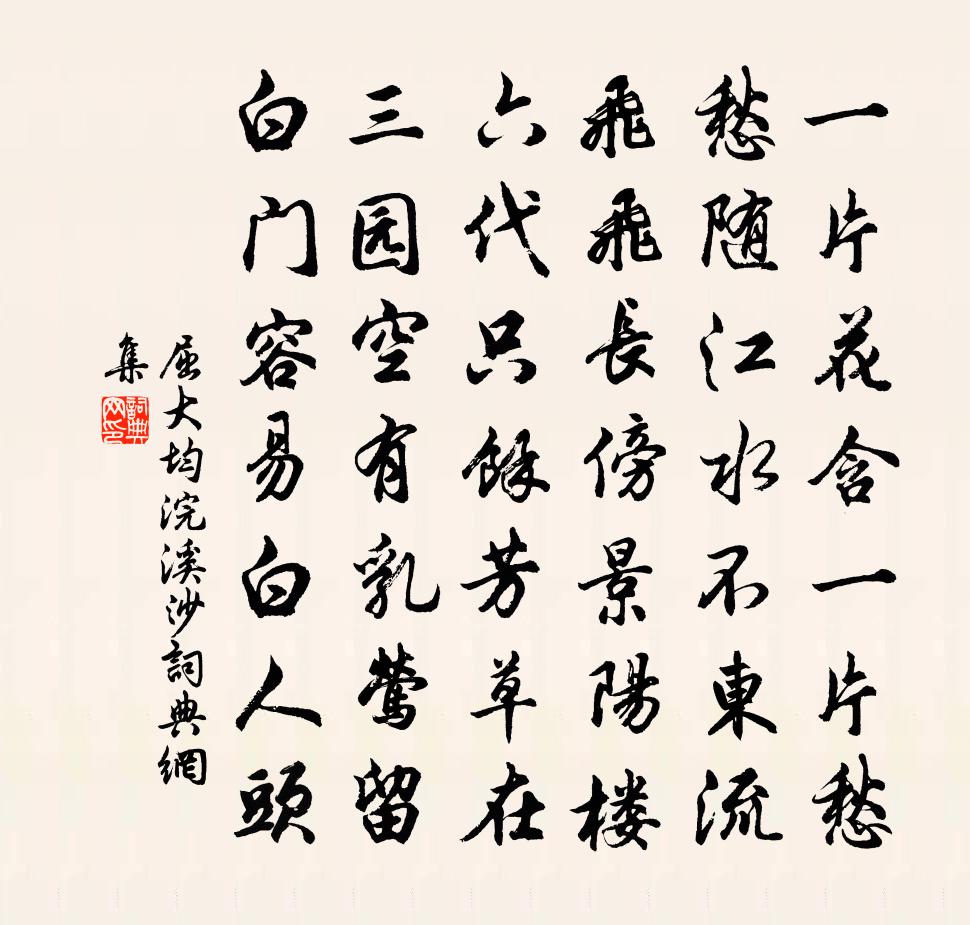 一片花含一片愁
愁随江水不東流
飛飛長傍景陽楼
六代只餘芳草在
三园空有乳鶯留
白门容易白人頭
屈大均浣溪沙詞典網
集
詞典网印